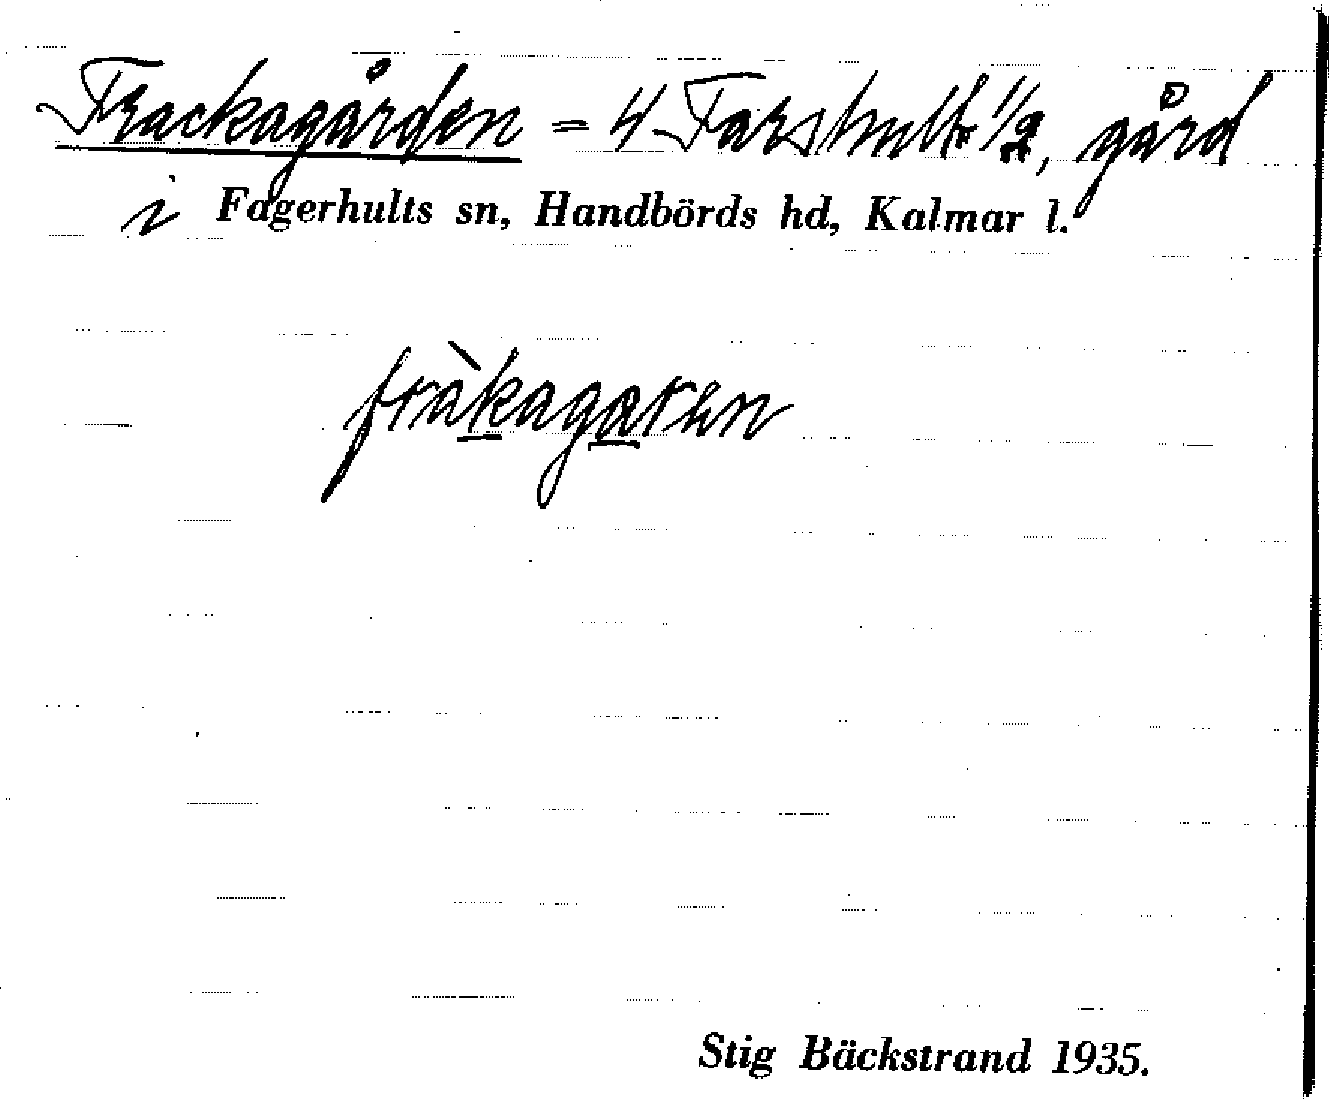 Frackagården = 4 Farshult 1/2, gård
i Fagerhults sn, Handbörds hd, Kalmar l.
fràkagaren
Stig Bäckstrand 1935.